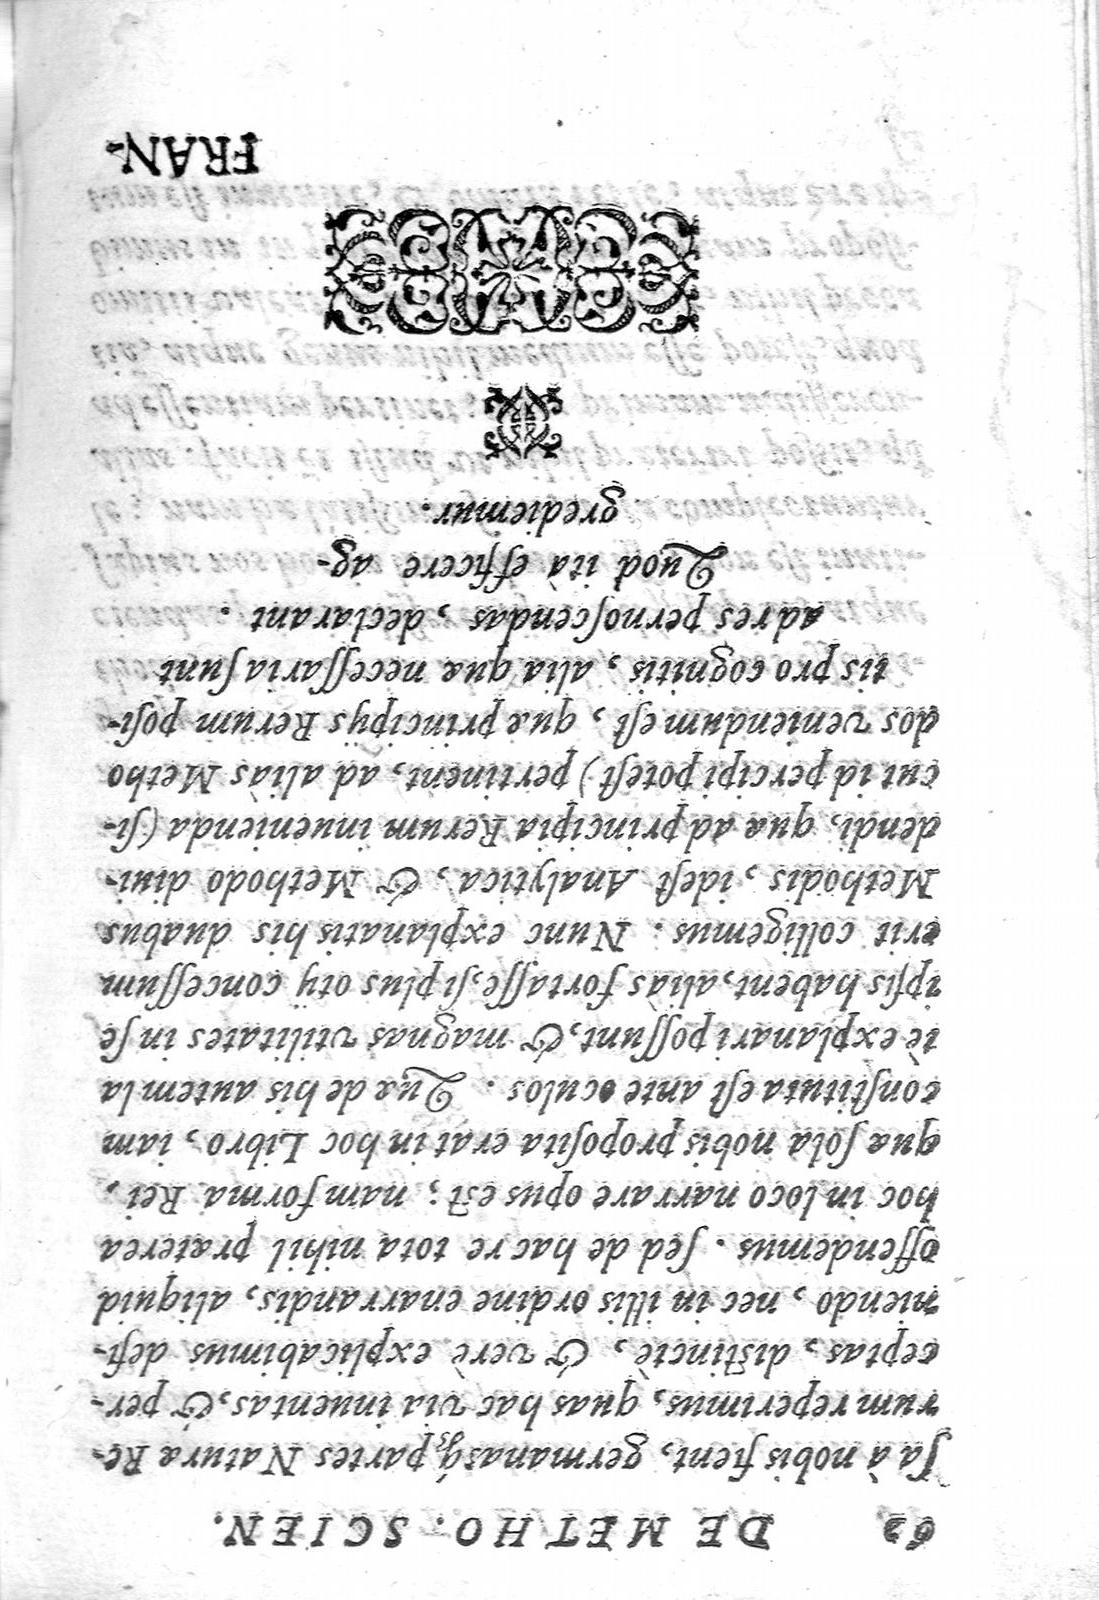 62 DE METHO. SCIEN.
ſa à nobis fient, germanasq́; partes Naturæ Re-
rum reperimus, quas hac via inuentas, & per-
ceptas, distinctè, & verè explicabimus defi-
niendo, nec in illis ordine enarrandis, aliquid
offendemus. ſed de hac re tota nihil præterea
hoc in loco narrare opus est; nam forma Rei,
quæ ſola nobis propoſita erat in hoc Libro, iam
conſtituta eſt ante oculos. Quæ de his autem la
tè explanari poſſunt, & magnas vtilitates in ſe
ipſis habent, alias fortaſſe, ſi plus otÿ conceſſum
erit colligemus. Nunc explanatis his duabus
Methodis, ideſt Analytica, & Methodo diui-
dendi, quæ ad principia Rerum inuenienda (ſi-
cut id percipi poteſt) pertinent, ad alias Metho
dos veniendum eſt, quæ principÿs Rerum poſi-
tis pro cognitis, alia quæ neceſſaria ſunt
ad res pernoſcendas, declarant.
Quod ita efficere ag-
grediemur.
FRAN-